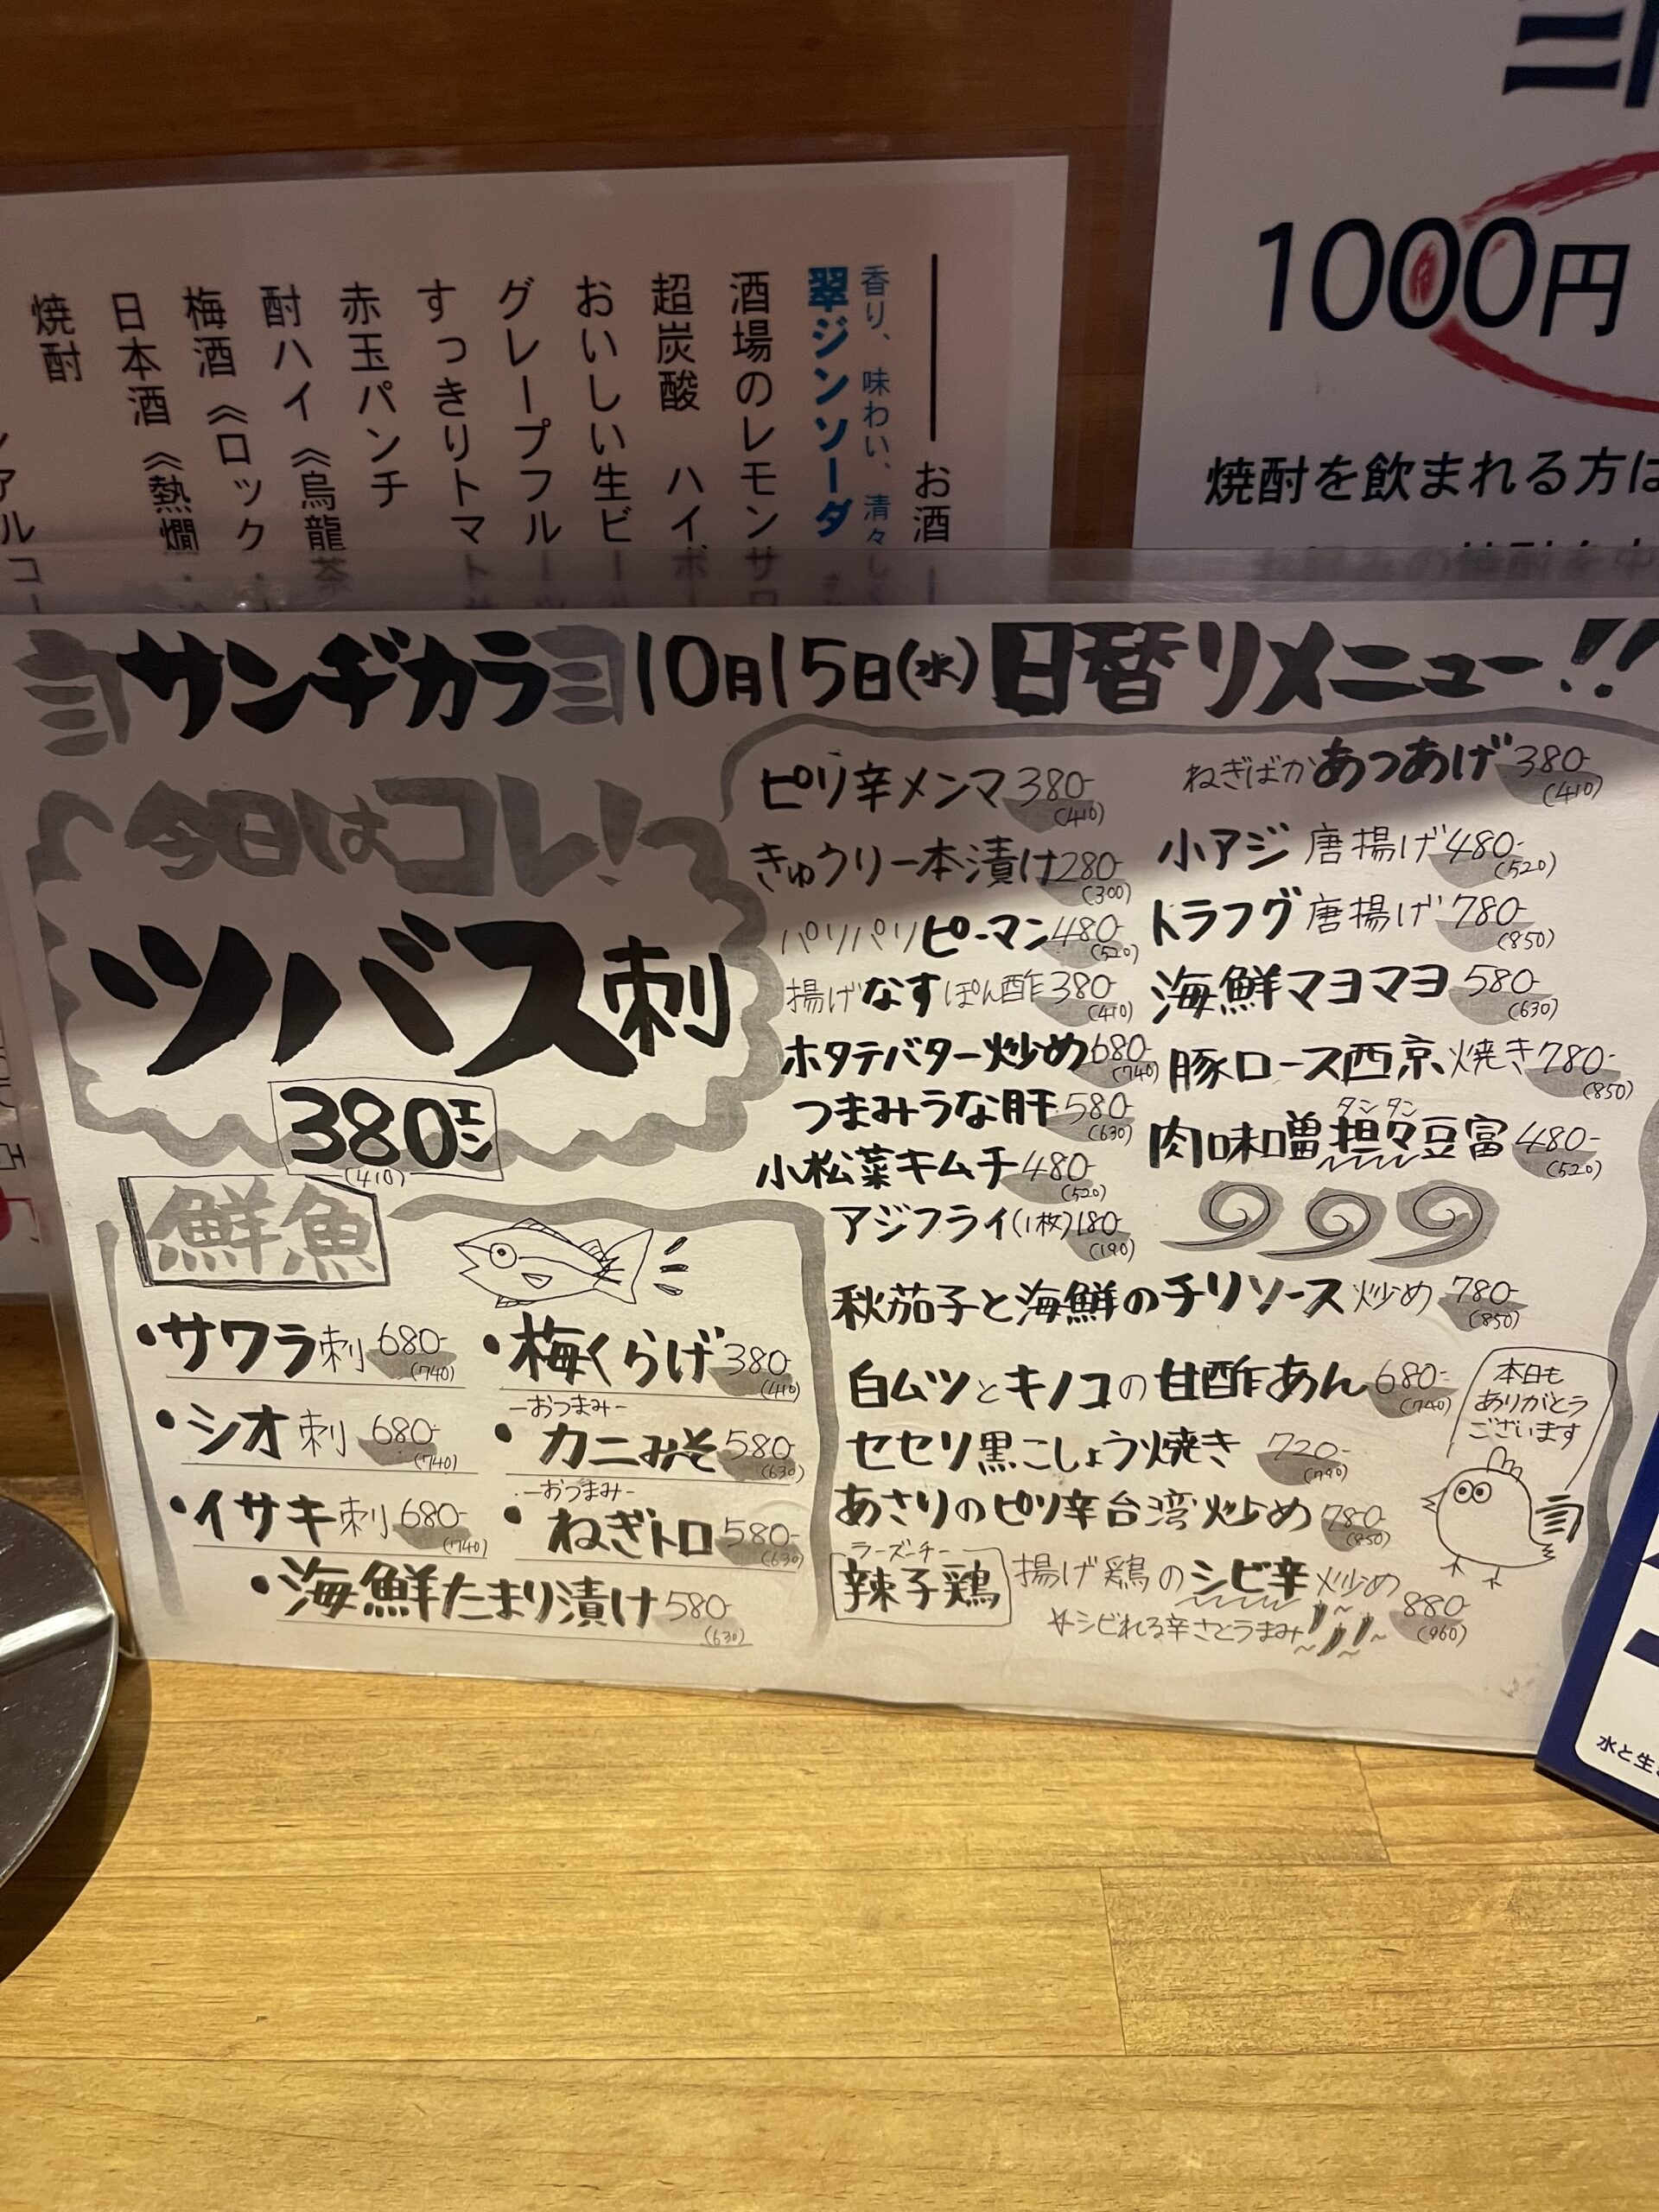 1000円
焼酎を飲まれる方は
お酒
香り、味わい、清々し
翠ジンソーダ
酒場のレモンサワ
超炭酸 ハイボー
おいしい生ビール
グレープフルーツ
すっきりトマト
赤玉パンチ
酎ハイ《烏龍茶
梅酒《ロック・
日本酒《熱燗・
焼酎
サンヂカラ 10月15日(水) 日替リメニュー!!
今日はコレ!
ツバス刺
380エン
(410)
鮮魚
・サワラ刺 680- (740)
・シオ刺 680- (740)
・イサキ刺 680- (740)
・梅くらげ 380- (410)
-おつまみ-
・カニみそ 580- (630)
-おつまみ-
・ねぎトロ 580- (630)
・海鮮たまり漬け 580- (630)
ピリ辛メンマ 380- (410)
きゅウリ一本漬け 280- (300)
パリパリピーマン 480- (520)
揚げなすぽん酢 380- (410)
ホタテバター炒め 680- (740)
つまみうな肝 580- (630)
小松菜キムチ 480- (520)
アジフライ(1枚) 180- (190)
ねぎばかあつあげ 380- (410)
小アジ唐揚げ 480- (520)
トラフグ唐揚げ 780- (850)
海鮮マヨマヨ 580- (630)
豚ロース西京焼き 780- (850)
タンタン
肉味噌担々豆富 480- (520)
秋茄子と海鮮のチリソース炒め 780- (850)
白ムツとキノコの甘酢あん 680- (740)
セセリ黒こしょう焼き 720- (790)
あさりのピリ辛台湾炒め 780- (850)
ラーズーチー
辣子鶏 揚げ鶏のシビ辛炒め 880- (960)
☆シビれる辛さとうまみ!!!
本日も
ありがとう
ございます
水と生き